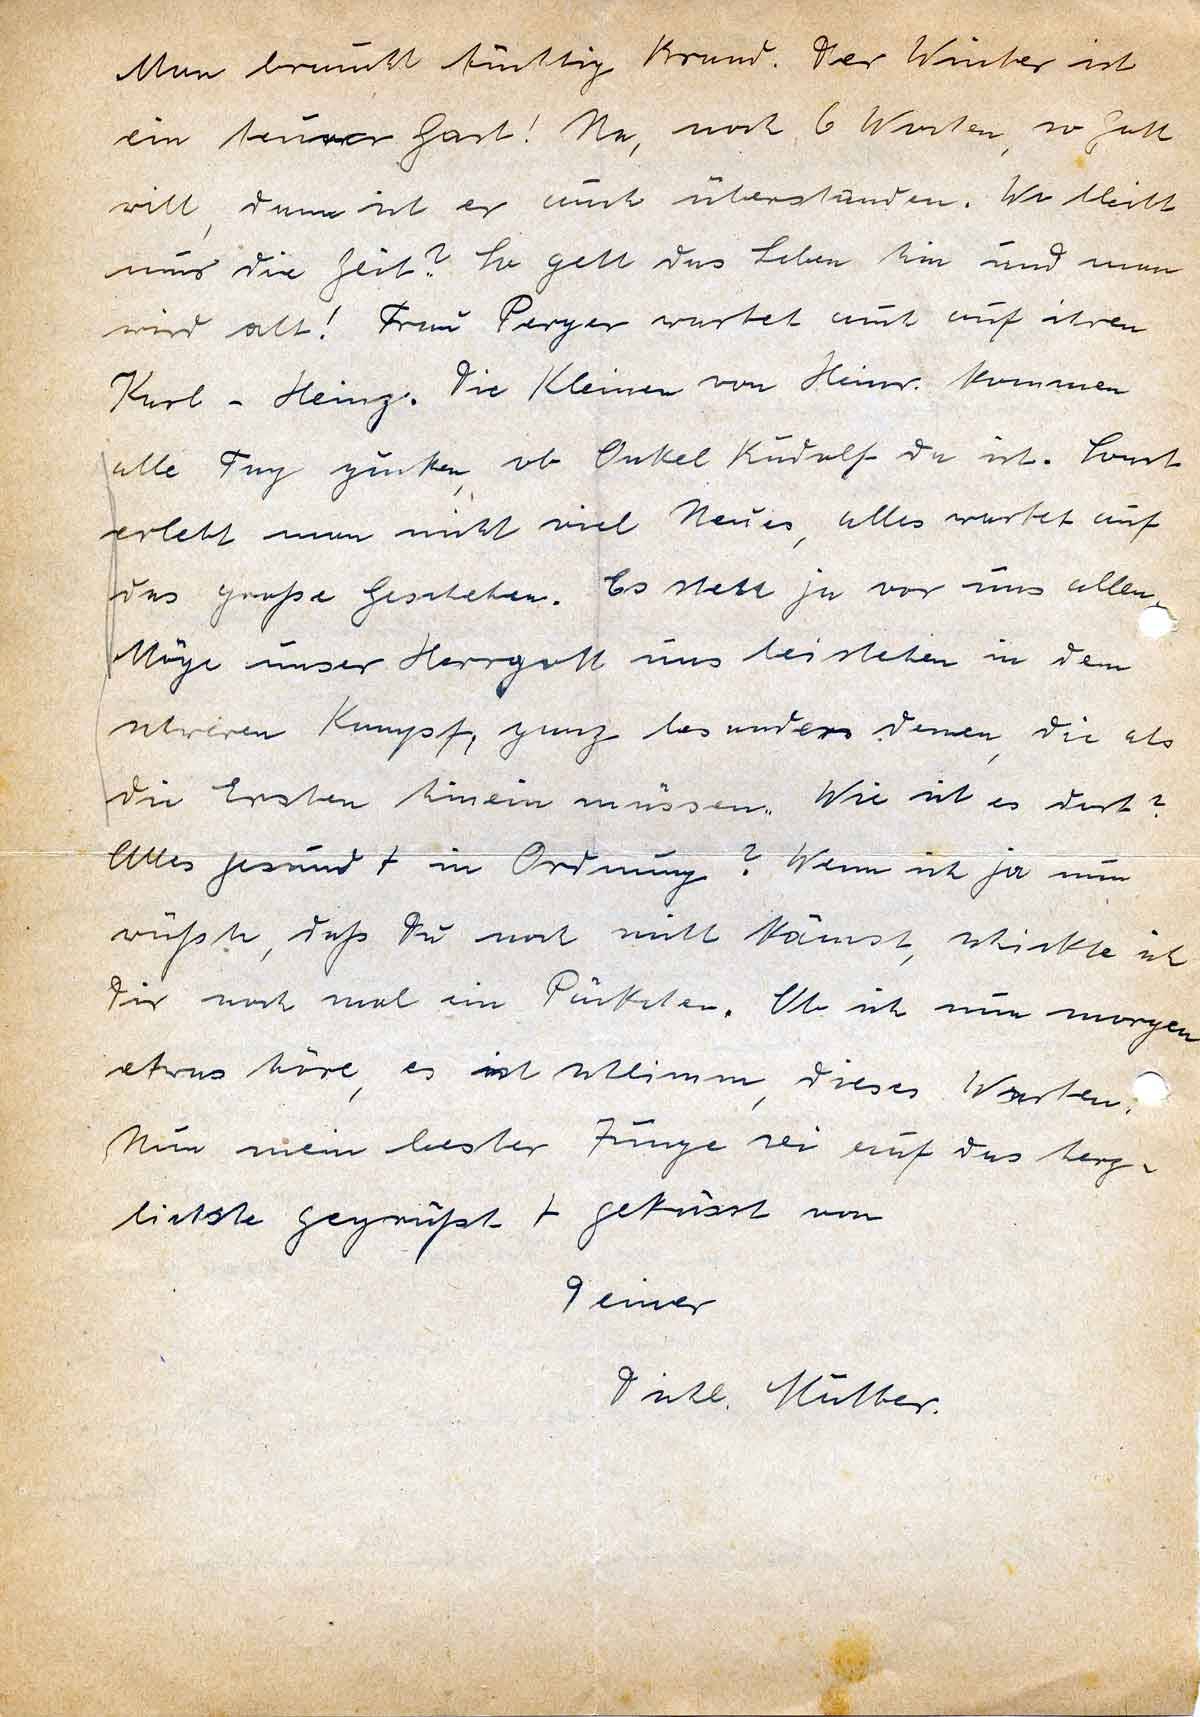 Man braucht tüchtig Brand. Der Winter ist
ein teurer Gast! Na, noch 6 Wochen, so Gott
will, dann ist er auch überstanden. Wo bleibt
nur die Zeit? So geht das Leben hin und man
wird alt! Frau Perger wartet auch auf ihren
Karl-Heinz. Die Kleinen von Heinr. kommen
alle Tag gucken, ob Onkel Rudolf da ist. Sonst
erlebt man nicht viel Neues, alles wartet auf
das große Geschehen. Es steht ja vor uns allen.
Möge unser Herrgott uns beistehen in dem
schweren Kampf, ganz besonders denen, die als
die Ersten hinein müssen. Wie ist es dort?
Alles gesund + in Ordnung? Wenn ich ja nun
wüßte, daß Du noch nicht kämst, schickte ich
Dir noch mal ein Päckchen. Ob ich nun morgen
etwas höre, es ist schlimm, dieses Warten.
Nun mein bester Junge sei auf das herz-
lichste gegrüßt + geküsst von
Deiner
Dichl. Mutter.